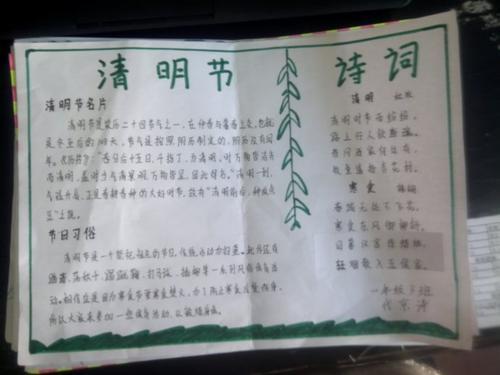 清明节
清明节名片
清明节是农历二十四节气之一，在仲春与暮春之交，也就
是冬至后的108天。节气是按照阳历制定的，阴历没有闰
年。《历书》：“春分后十五日，斗指丁，为清明，时万物皆洁齐
而清明，盖时当气清景明，万物皆显，因此得名。”清明一到，
气温升高，正是春耕春种的大好时节，故有“清明前后，种瓜点
豆”之说。
节日习俗
清明节是一个祭祀祖先的节日，传统活动为扫墓。
踏青、荡秋千、蹴鞠、打马球、插柳等一系列风俗体育活
动。相传这是因为寒食节要寒食禁火，为了防止寒食冷餐伤身，
所以大家来参加一些体育活动，以锻炼身体。
诗词
清明 杜牧
清明时节雨纷纷，
路上行人欲断魂。
借问酒家何处有，
牧童遥指杏花村。
寒食 韩翃
春城无处不飞花，
寒食东风御柳斜。
日暮汉宫传蜡烛，
轻烟散入五侯家。
一年级3班